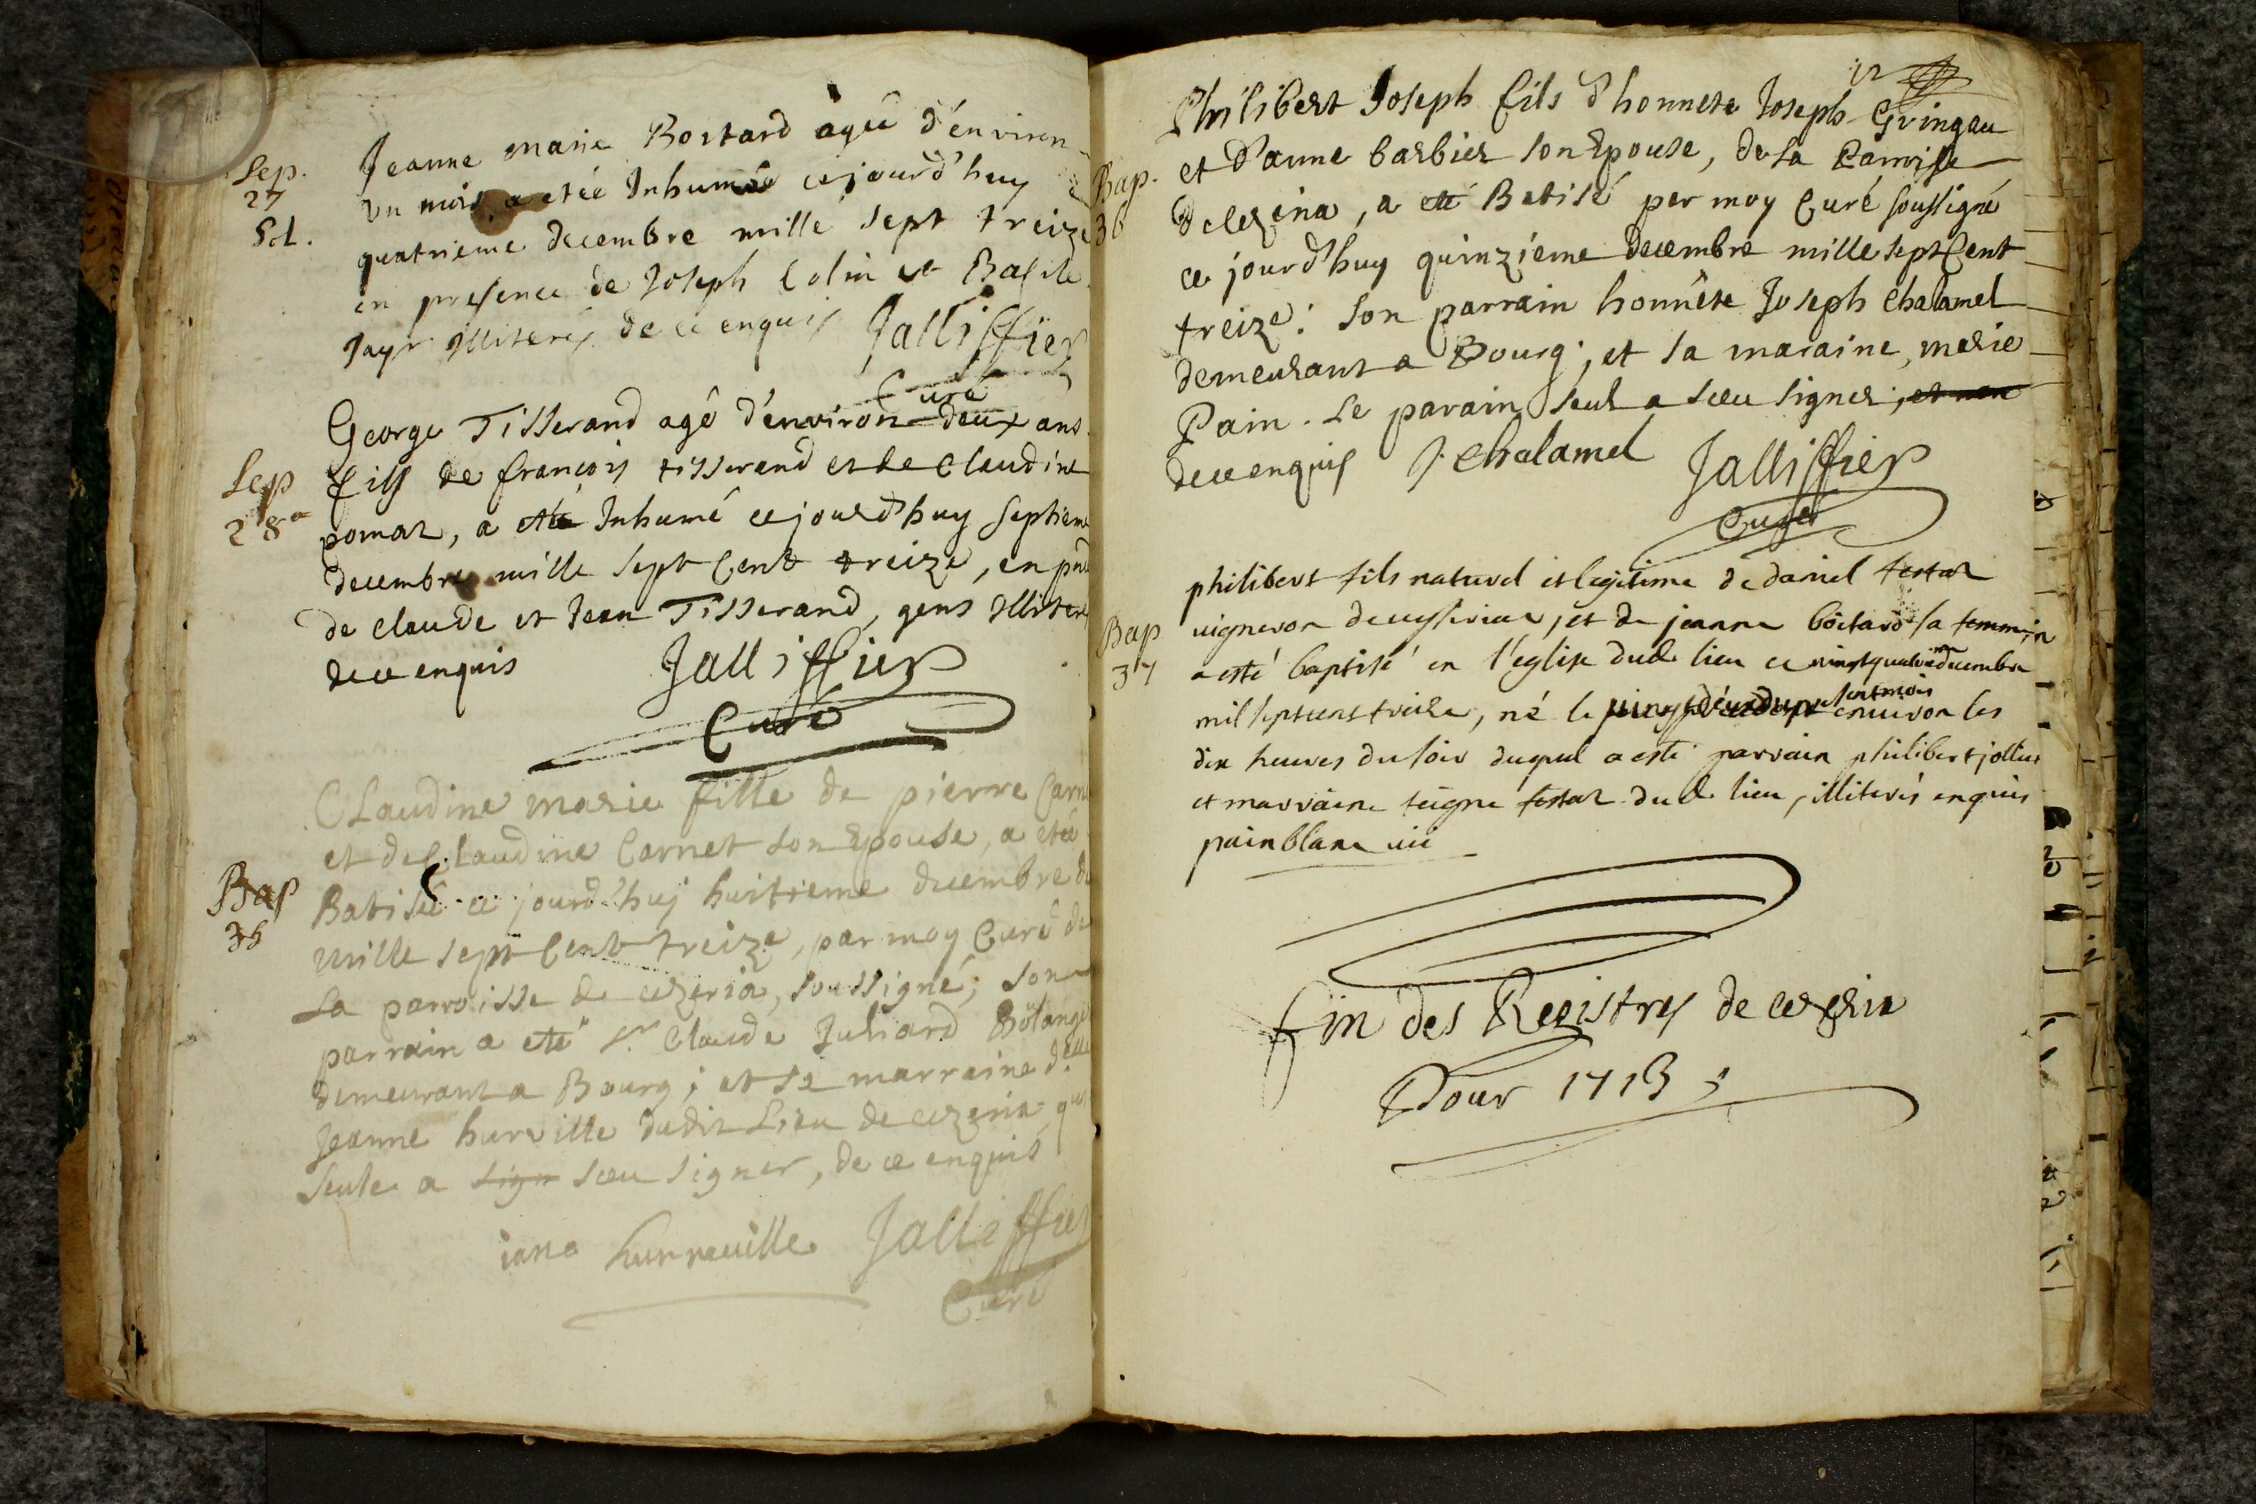 Sep.
27
Sol.
Jeanne marie Bostard agée d'environ
vn mois, a etée Inhumée cejourd'huy
quatrieme decembre mille sept treize
en presence de Joseph Colin et Basile
Jayr illiterés de ce enquis Jalliffier
Curé
Sep
28e
George Tisserand agé d'environ deux ans
fils de françois tisserand et de Claudine
pomar, a eté Inhumé cejourd'huy septieme
decembre mille sept Cent treize, en pnce
de claude et Jean Tisserand, gens illiteré
de ce enquis Jalliffier
Curé
Bap
35
CLaudine marie fille de pierre Carn
et de Claudine Carnet son Epouse, a eté
Batisée ce jourd'huy huitieme decembre
mille sept Cent treize, par moy Curé de
La parroisse de cezeria, soussigné; son
parrain a eté sr Claude Juliard Bolange
demeurant a Bourg; et sa marraine d.elle
Jeanne hurville dudit Lieu de cezeria qui
seule a sign sceu signer, de ce enquis
iana hurreuille Jalliffier
Curé
12
Bap.
36
Philibert Joseph fils d'honnete Joseph Gringau
et d'anne barbier son Epouse, de la Parroisse
de cezeria, a eté Batisé par moy Curé soussigné
ce jourd'huy quinzieme decembre mille sept Cent
treize: son parrain honnête Joseph Chalamel
demeurant a Bourg; et sa maraine, marie
Pain. Le parain seul a sceu signer, et non
de ce enquis J. Chalamel Jalliffier
Curé
Bap
37
philibert fils naturel et legitime de daniel festaz
uigneron de ceyseriat, et de jeanne boitard sa femme
a esté baptisé en l'eglise dud lieu ce vingtquatrieme decembre
mil septcens treize, né le vingtdeux dup environ les
dix heures du soir duquel a esté parrain philibert jollur
et marraine teigne festaz dud lieu, illiterés enquis
painblanc vic
fin des Registres de cezeria
Pour 1713